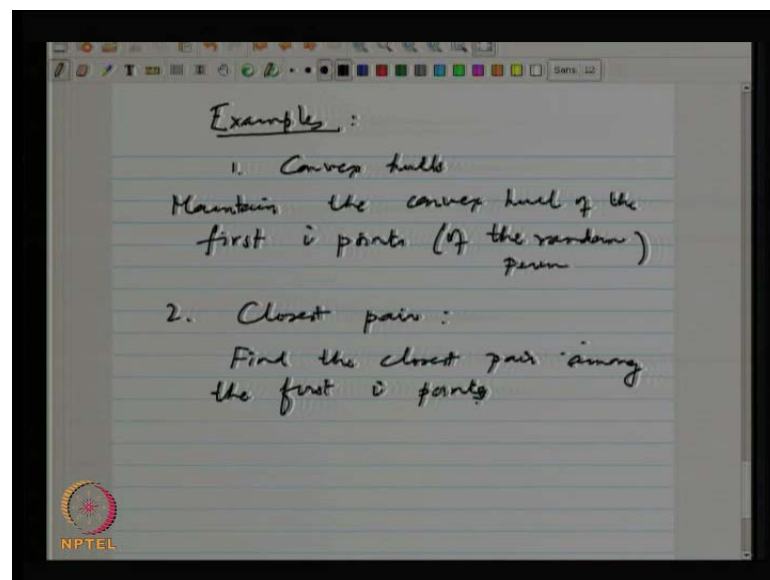 Sans 12
Examples :
1. Convex hulls
Maintain the convex hull of the
first i points (of the random
perm)
2. Closest pair :
Find the closest pair among
the first i points
NPTEL